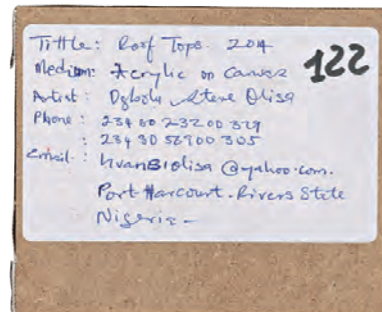 Tittle: Roof Tops. 2014
122
Medium: Acrylic on Canvas
Artist: Steve Olisa
Phone: 234 80 23200 329
: 234 80 56900 305
Email: @yahoo.com.
Port Harcourt. Rivers State
Nigeria -